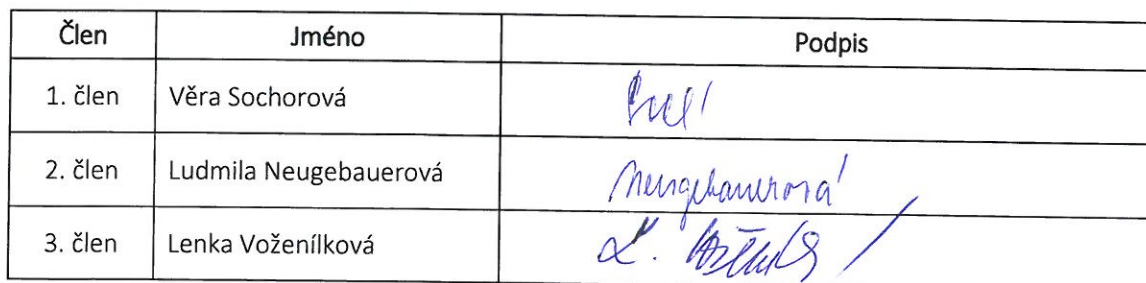 Člen Jméno Podpis
1. člen Věra Sochorová
2. člen Ludmila Neugebauerová Neugebauerová
3. člen Lenka Voženílková L.